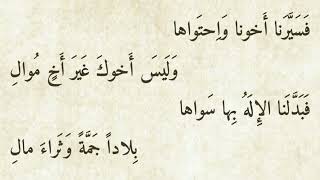 فَسَيَّرَنا أَخونا وَاِحتَواها
وَلَيسَ أَخوكَ غَيرَ أَخٍ مُوالِ
فَبَدَّلَنا الإِلَهُ بِها سَواها
بِلاداً جَمَّةً وَثَراءَ مالِ